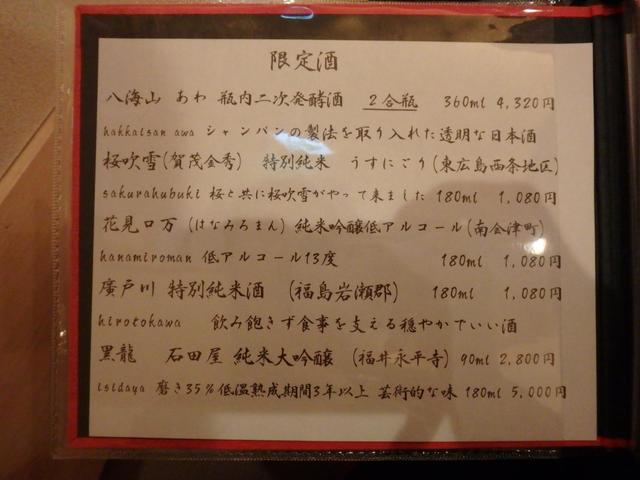 限定酒
八海山 あわ 瓶内二次発酵酒 2合瓶 360ml 4,320円
hakkaisan awa シャンパンの製法を取り入れた透明な日本酒
桜吹雪(賀茂金秀) 特別純米 うすにごり(東広島西条地区)
sakurahubuki 桜と共に桜吹雪がやって来ました 180ml 1,080円
花見ロ万(はなみろまん)純米吟醸低アルコール(南会津町)
hanamiroman 低アルコール13度 180ml 1,080円
廣戸川 特別純米酒 (福島岩瀬郡) 180ml 1,080円
hirotokawa 飲み飽きず食事を支える穏やかでいい酒
黒龍 石田屋 純米大吟醸 (福井永平寺) 90ml 2,800円
isidaya 磨き35%低温熟成期間3年以上 芸術的な味 180ml 5,000円